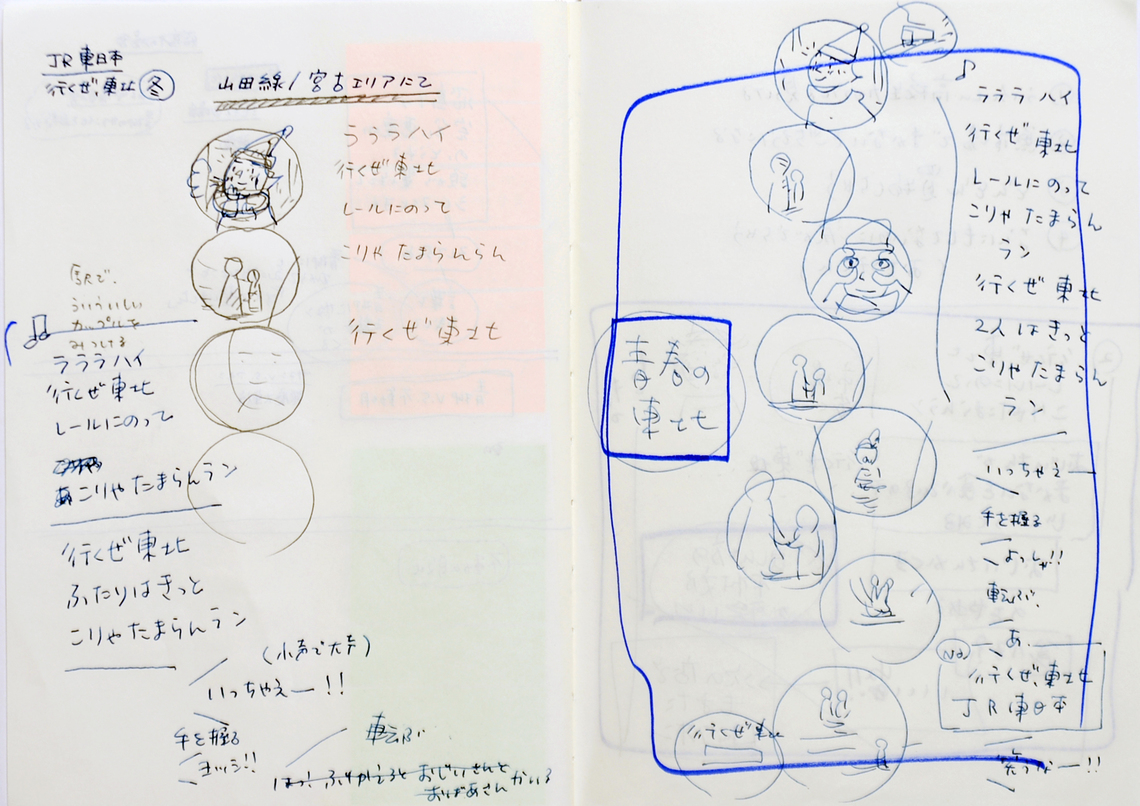 JR東日本
行くぜ、東北 冬
山田線/宮古エリアにて
ラララハイ
行くぜ東北
レールにのって
こりゃたまらんらん
行くぜ東北
駅で、
ういういしい
カップルを
みつける
ラララハイ
行くぜ東北
レールにのって
こりゃたまらんラン
行くぜ東北
ふたりはきっと
こりゃたまらんラン
(小声で大声)
いっちゃえー!!
手を握る
ヨッシ!!
転ぶ
ふりかえると おじいさんと
おばあさん
がいる
ラララハイ
行くぜ東北
レールにのって
こりゃたまらん
ラン
行くぜ東北
2人はきっと
こりゃたまらん
ラン
青春の
東北
いっちゃえー
手を握る
よっしゃ!!
転ぶ、
あ、
Na
行くぜ、東北
JR東日本
行くぜ東北
笑うなー!!